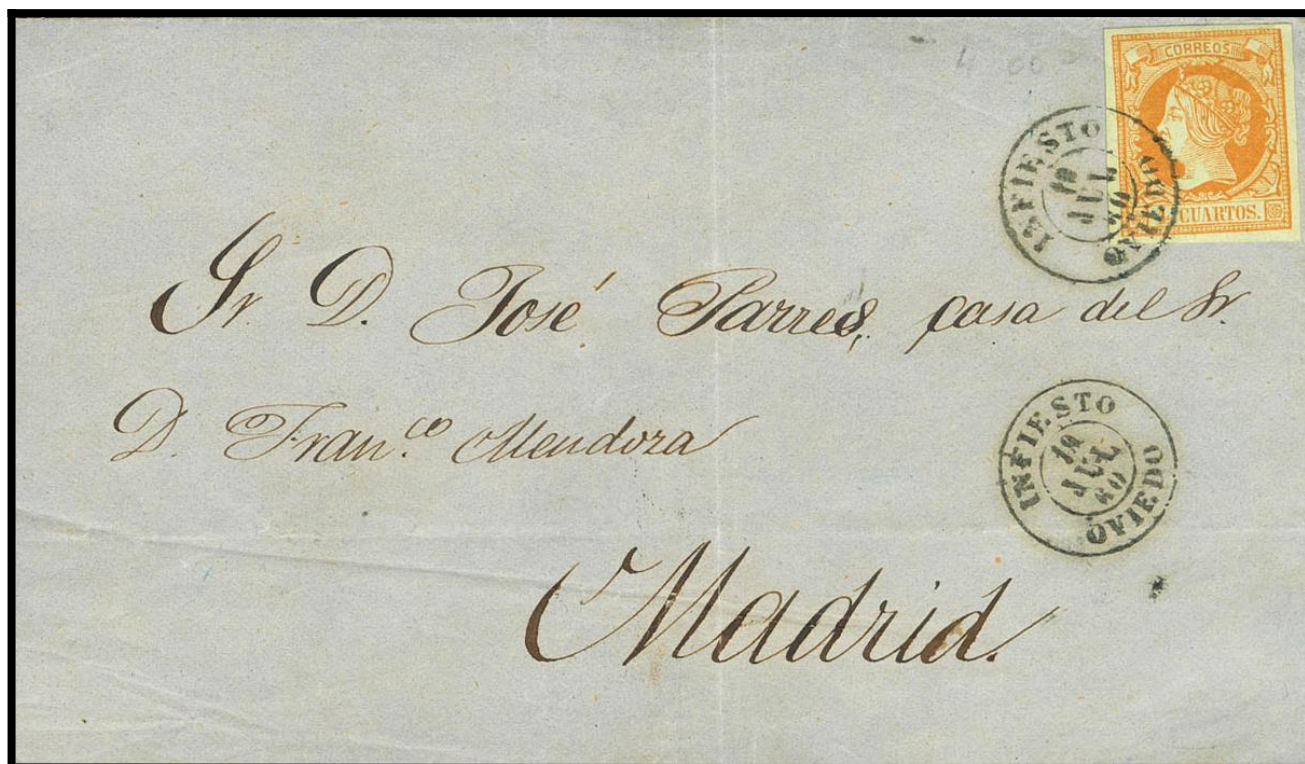 CORREOS
CUARTOS.
INFIESTO
JUL
60
OVIEDO
Sr. D. José Parres, casa del Sr.
D. Fran.co Mendoza
INFIESTO
JUL
60
OVIEDO
Madrid.